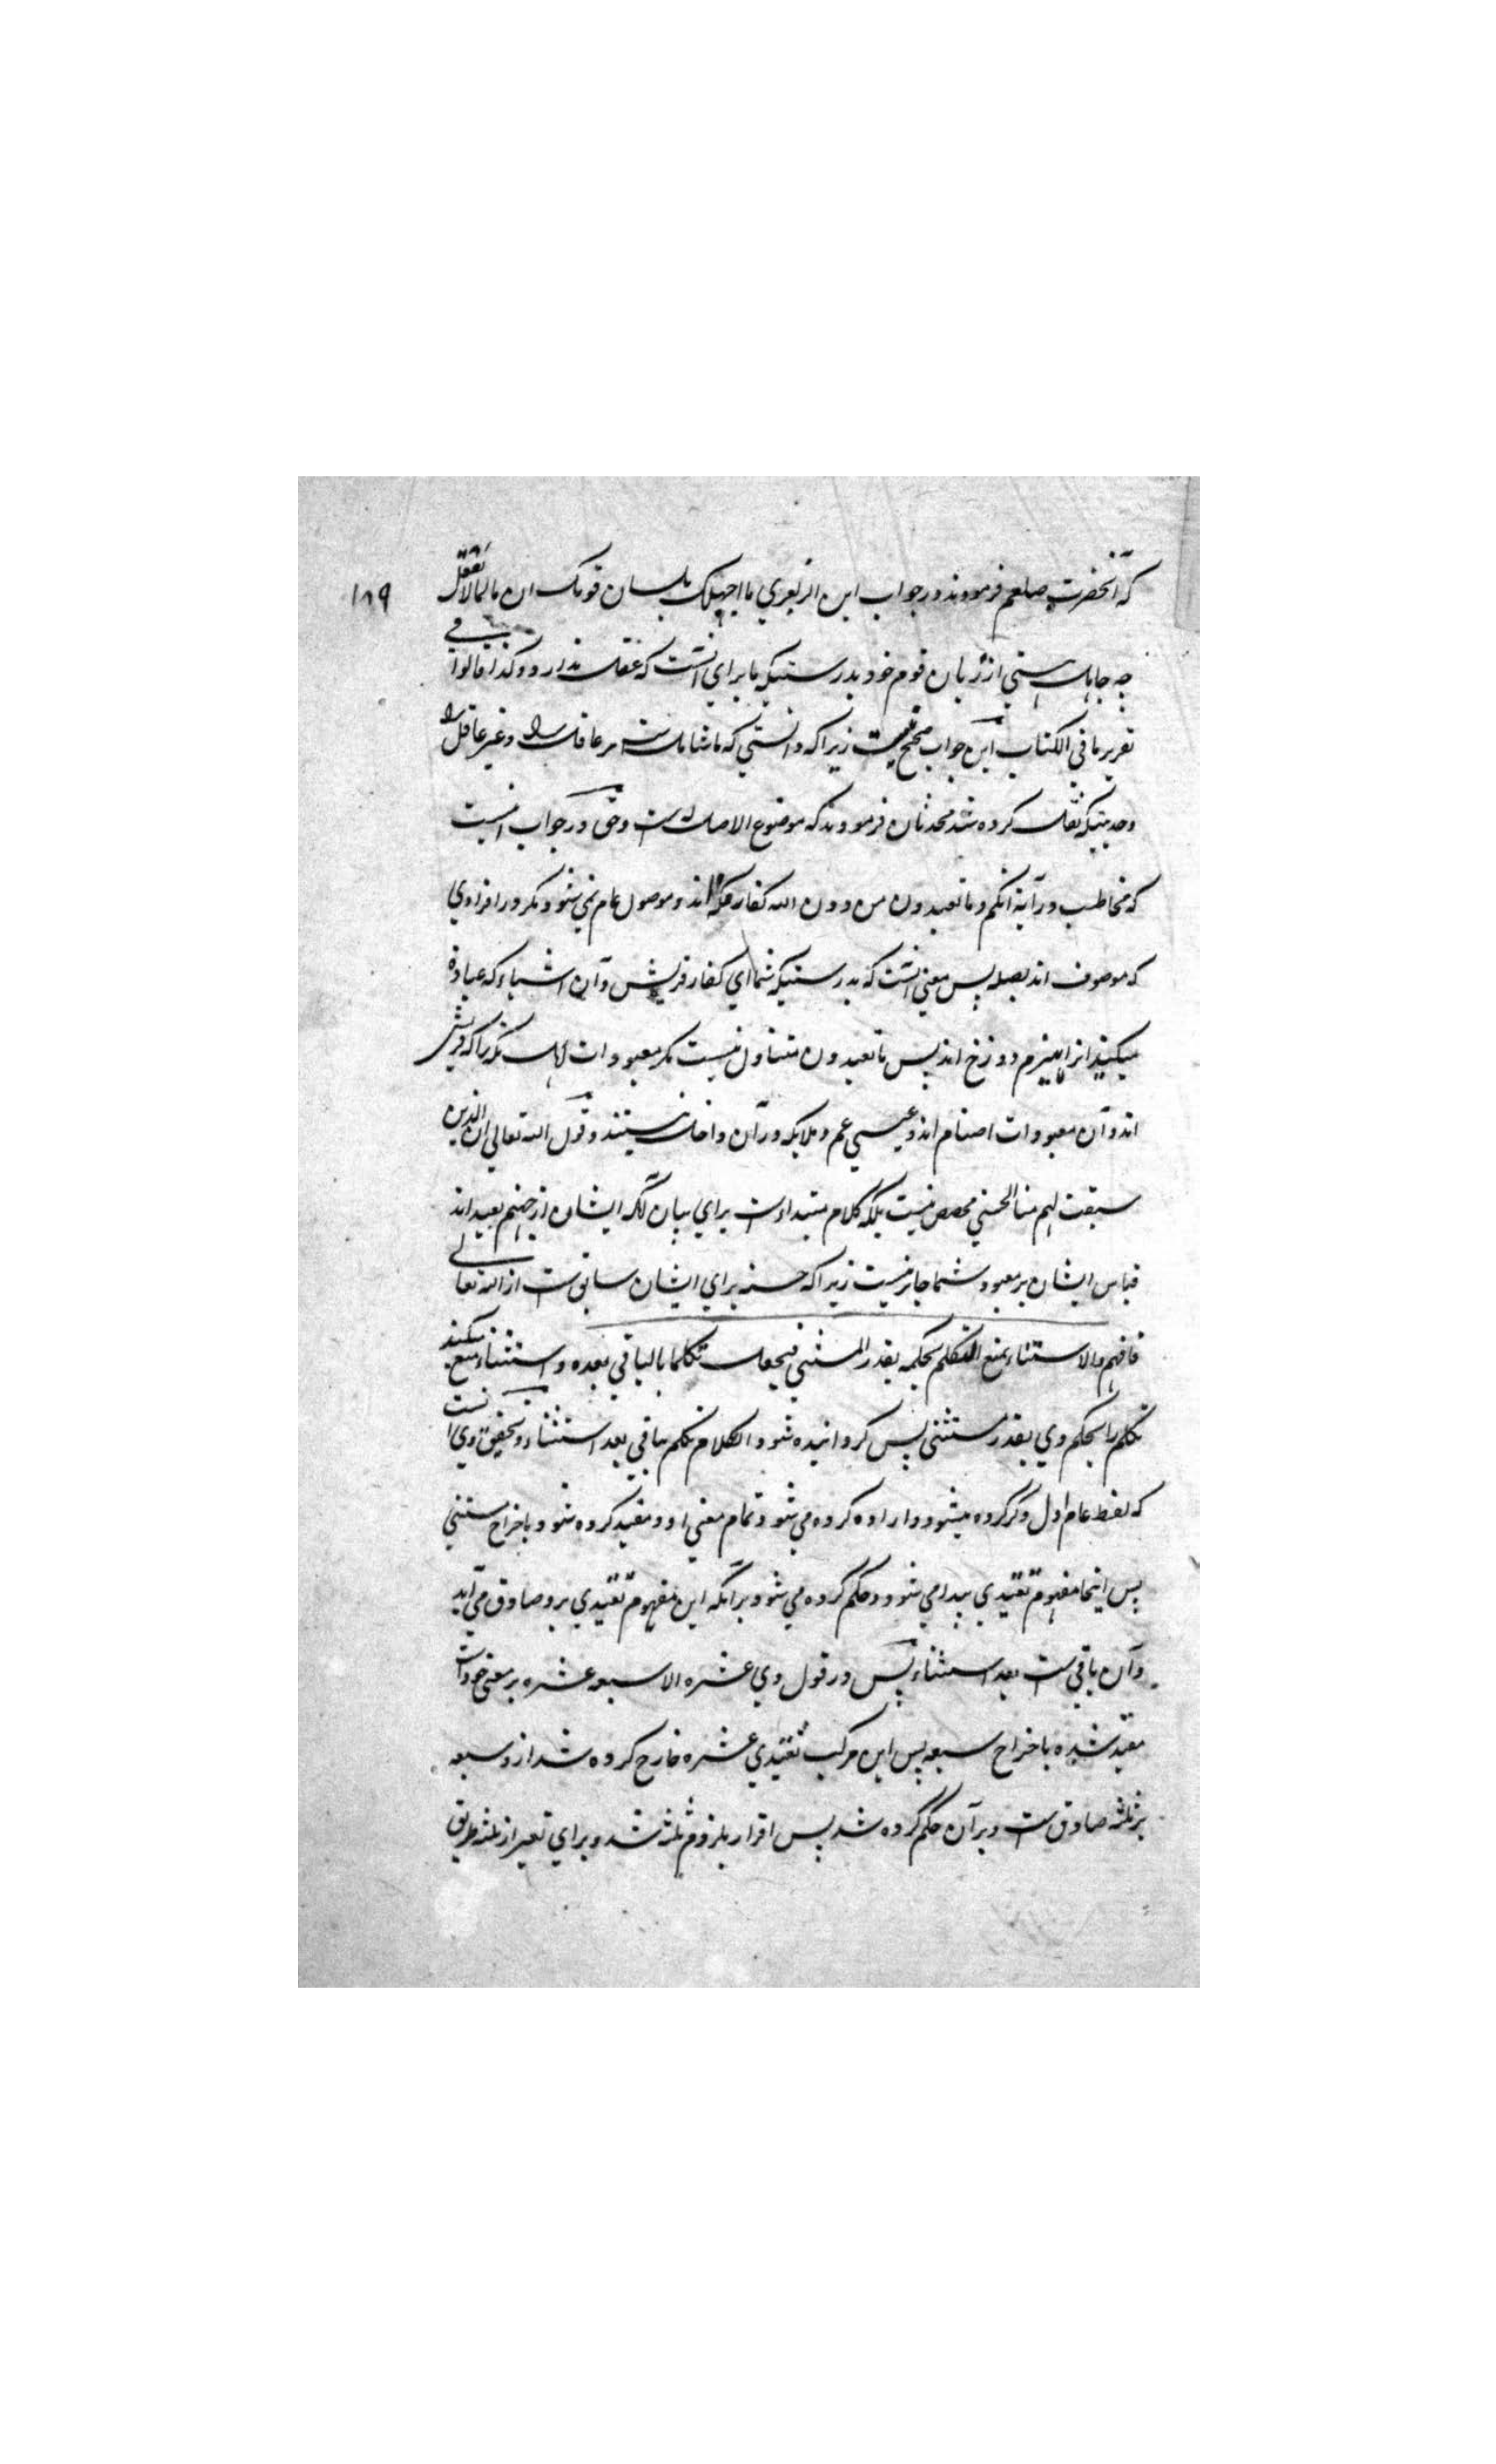 ۱۸۹
که آنحضرت صلعم فرمودند در جواب ابن الزبعري ما اجهلک بلسان قومک ان ما لما لا تعقل
چه جاهل هستي از زبان قوم خود بدرستیکه ما براي آنست که عقل ندارد و کذا قالوا في
تقریر ما في الکتاب این جواب صحیح نیست زیراکه دانستي که ما شامل ست مر عاقل را و غیر عاقل را
و حدیثیکه نقل کرده شد محدثان فرمودند که موضوع الاصل له ست و حق در جواب اینست
که مخاطب در آیة انکم و ما تعبدون من دون الله کفار مکه اند و موصول عام نمي شود مگر در افرادي
که موصوف اند بصله پس معني آنست که بدرستیکه شما اي کفار قریش و آن اشیاء که عبادة
میکنید آنرا هیزم دوزخ اند پس ما تعبدون متناول نیست مگر معبودات اهل مکه را که قریش
اند و آن معبودات اصنام اند و عیسي عم و ملایکه در آن داخل نیستند و قول الله تعالي ان الذین
سبقت لهم منا الحسني مخصص نیست بلکه کلام مبتداست براي بیان آنکه ایشان از جهنم بعید اند
قیاس ایشان بر معبود شما جائز نیست زیراکه حسنه براي ایشان سابق ست از الله تعالي
فافهم والاستثناء یمنع التکلم بحکمه بقدر المستثني فیجعل تکلما بالباقي بعده و استثناء منع میکند
تکلم را بحکم وي بقدر مستثني پس گردانیده شود الکلام تکلم بباقي بعد استثناء و تحقیق وي آنست
که لفظ عام اول ذکر کرده میشود و اراده کرده مي شود تمام معني او و مقید کرده شود باخراج مستثني
پس اینجا مفهوم تقییدي پیدا مي شود و حکم کرده مي شود بر آنکه این مفهوم تقییدي برو صادق مي آید
و آن باقي ست بعد استثناء پس در قول وي عشره الا سبعه عشره بر معني خود است
مقید شده باخراج سبعه پس این مرکب تقییدي عشره خارج کرده شد ازو سبعه
بر ثلثه صادق ست و بر آن حکم کرده شد پس اقرار بلزوم ثلثه شد و براي تعبیر از ثلثه طریق